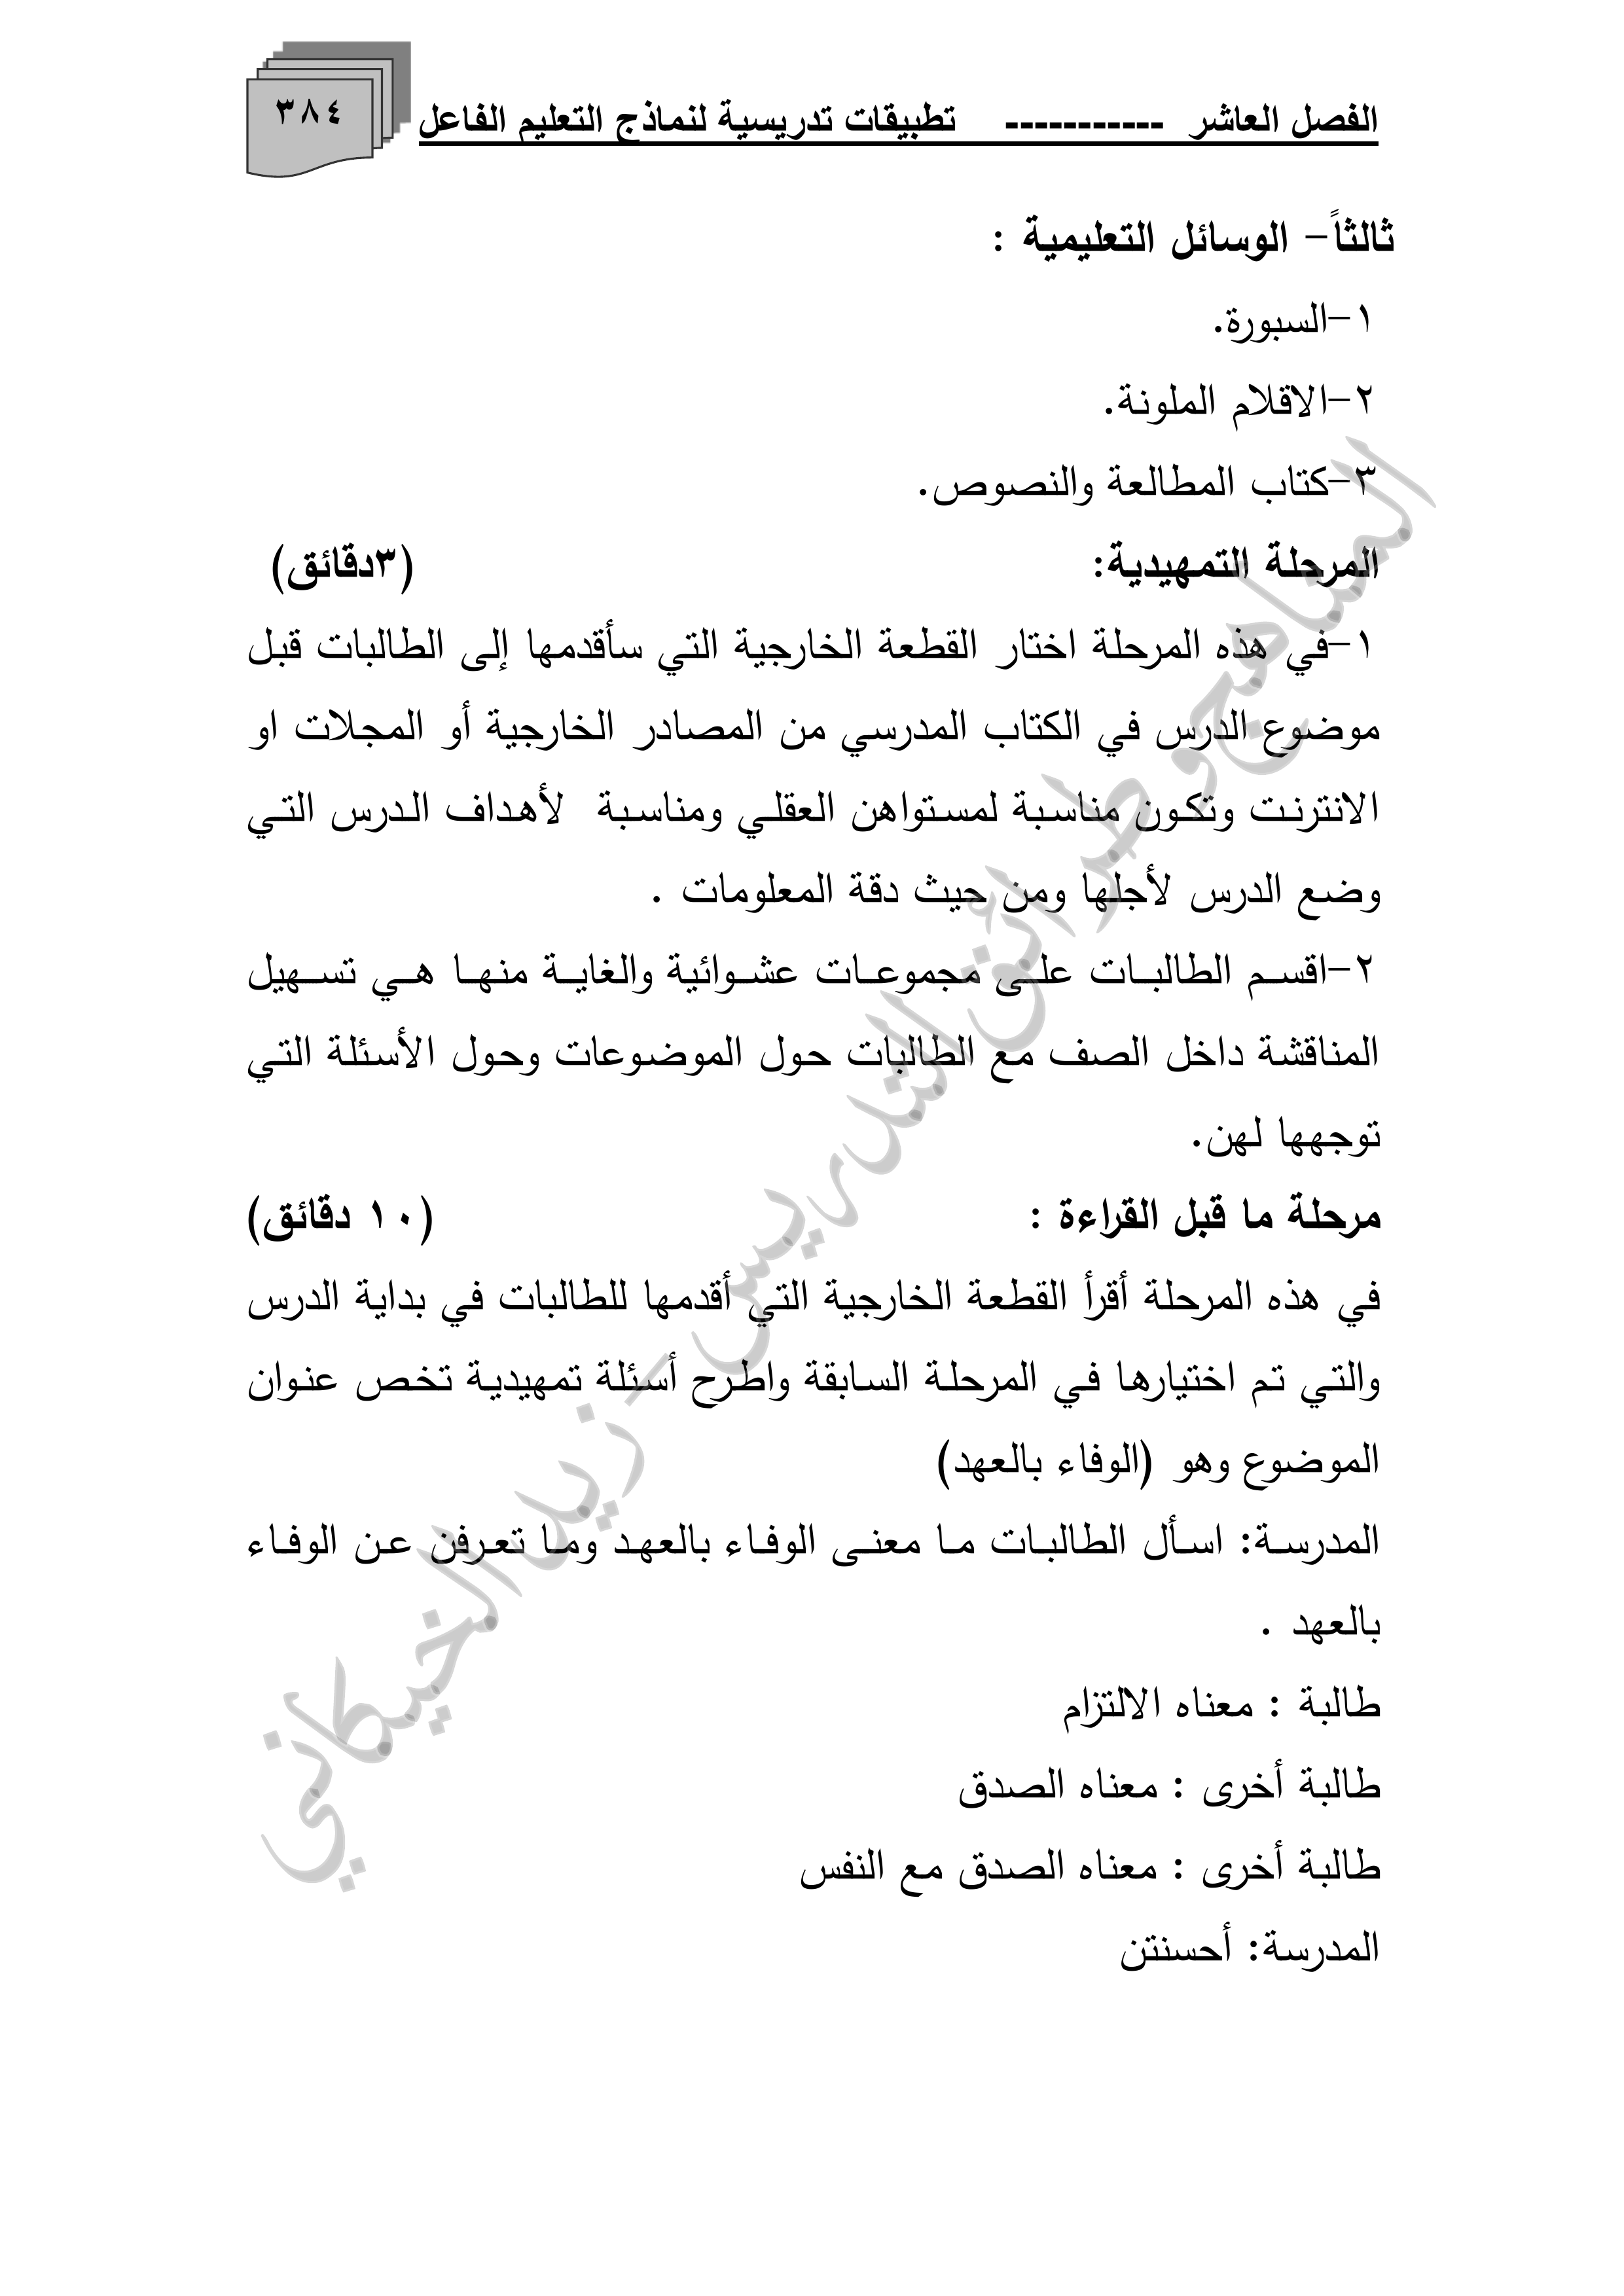 الفصل العاشر ----------- تطبيقات تدريسية لنماذج التعليم الفاعل
٣٨٤
ثالثاً- الوسائل التعليمية :
١-السبورة.
٢-الاقلام الملونة.
٣-كتاب المطالعة والنصوص.
المرحلة التمهيدية: (٣دقائق)
١-في هذه المرحلة اختار القطعة الخارجية التي سأقدمها إلى الطالبات قبل
موضوع الدرس في الكتاب المدرسي من المصادر الخارجية أو المجلات او
الانترنت وتكون مناسبة لمستواهن العقلي ومناسبة لأهداف الدرس التي
وضع الدرس لأجلها ومن حيث دقة المعلومات .
٢-اقسم الطالبات على مجموعات عشوائية والغاية منها هي تسهيل
المناقشة داخل الصف مع الطالبات حول الموضوعات وحول الأسئلة التي
توجهها لهن.
مرحلة ما قبل القراءة : (١٠ دقائق)
في هذه المرحلة أقرأ القطعة الخارجية التي أقدمها للطالبات في بداية الدرس
والتي تم اختيارها في المرحلة السابقة واطرح أسئلة تمهيدية تخص عنوان
الموضوع وهو (الوفاء بالعهد)
المدرسة: اسأل الطالبات ما معنى الوفاء بالعهد وما تعرفن عن الوفاء
بالعهد .
طالبة : معناه الالتزام
طالبة أخرى : معناه الصدق
طالبة أخرى : معناه الصدق مع النفس
المدرسة: أحسنتن
المناهج وطرائق التدريس - زيد الخيكاني